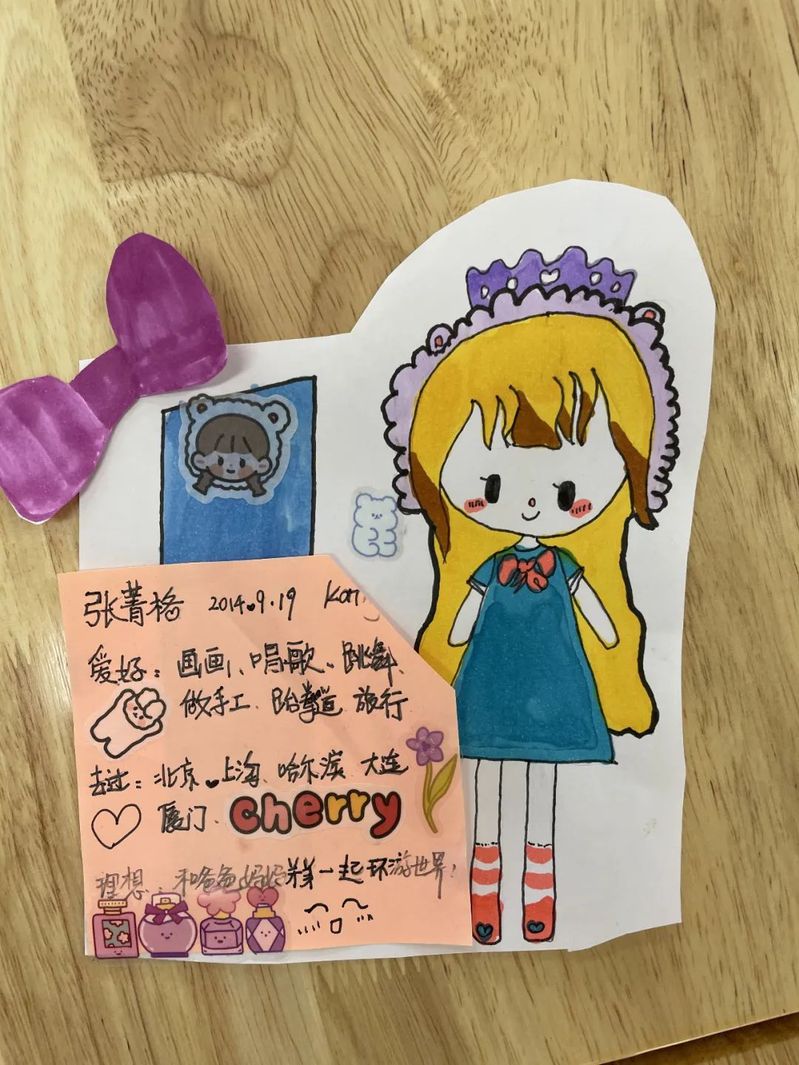 张菁格 2014.9.19
爱好：画画、唱歌、跳舞、
做手工、跆拳道、旅行
去过：北京、上海、哈尔滨、大连
厦门、cherry
理想：和爸爸妈妈弟弟一起环游世界！